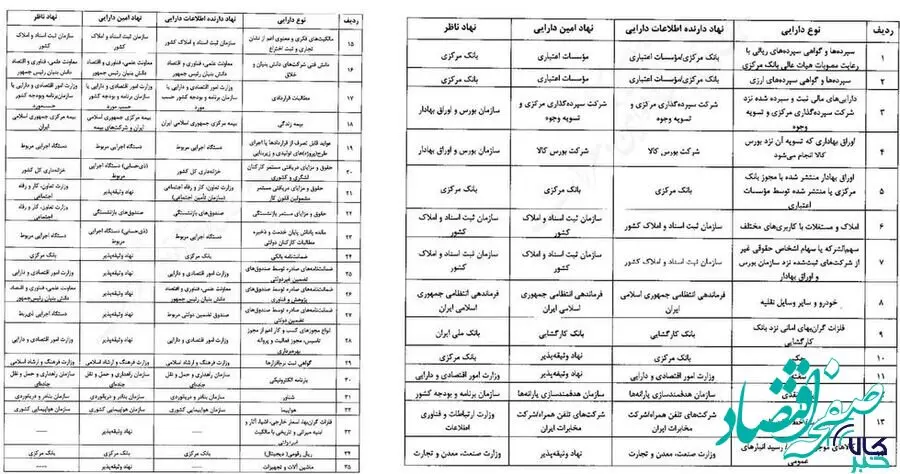 ردیف نوع دارایی نهاد دارنده اطلاعات دارایی نهاد امین دارایی نهاد ناظر
۱ سپرده‌ها و گواهی سپرده‌های ریالی با رعایت مصوبات هیات عالی بانک مرکزی بانک مرکزی/مؤسسات اعتباری مؤسسات اعتباری بانک مرکزی
۲ سپرده‌ها و گواهی سپرده‌های ارزی بانک مرکزی/مؤسسات اعتباری مؤسسات اعتباری بانک مرکزی
۳ دارایی‌های مالی ثبت و سپرده شده نزد شرکت سپرده‌گذاری مرکزی و تسویه وجوه شرکت سپرده‌گذاری مرکزی و تسویه وجوه شرکت سپرده‌گذاری مرکزی و تسویه وجوه سازمان بورس و اوراق بهادار
۴ اوراق بهاداری که تسویه آن نزد بورس کالا انجام می‌شود شرکت بورس کالا شرکت بورس کالا سازمان بورس و اوراق بهادار
۵ اوراق بهادار منتشر شده با مجوز بانک مرکزی یا منتشر شده توسط مؤسسات اعتباری بانک مرکزی بانک مرکزی بانک مرکزی
۶ املاک و مستغلات با کاربری‌های مختلف سازمان ثبت اسناد و املاک کشور سازمان ثبت اسناد و املاک کشور سازمان ثبت اسناد و املاک کشور
۷ سهم‌الشرکه یا سهام اشخاص حقوقی غیر از شرکت‌های ثبت‌شده نزد سازمان بورس و اوراق بهادار سازمان ثبت اسناد و املاک کشور سازمان ثبت اسناد و املاک کشور سازمان ثبت اسناد و املاک کشور
۸ خودرو و سایر وسایل نقلیه فرماندهی انتظامی جمهوری اسلامی ایران فرماندهی انتظامی جمهوری اسلامی ایران فرماندهی انتظامی جمهوری اسلامی ایران
۹ فلزات گران‌بهای امانی نزد بانک کارگشایی بانک کارگشایی بانک کارگشایی بانک ملی ایران
۱۰ چک بانک مرکزی نهاد وثیقه‌پذیر بانک مرکزی
۱۱ سفته وزارت امور اقتصادی و دارایی نهاد وثیقه‌پذیر وزارت امور اقتصادی و دارایی
نقدی سازمان هدفمندسازی یارانه‌ها سازمان هدفمندسازی یارانه‌ها سازمان برنامه و بودجه کشور
۱۳ شرکت‌های تلفن همراه/شرکت مخابرات ایران شرکت‌های تلفن همراه/شرکت مخابرات ایران وزارت ارتباطات و فناوری اطلاعات
رسید انبارهای عمومی وزارت صنعت، معدن و تجارت نهاد وثیقه‌پذیر وزارت صنعت، معدن و تجارت
ردیف نوع دارایی نهاد دارنده اطلاعات دارایی نهاد امین دارایی نهاد ناظر
۱۵ مالکیت‌های فکری و معنوی اعم از نشان تجاری و ثبت اختراع سازمان ثبت اسناد و املاک کشور سازمان ثبت اسناد و املاک کشور سازمان ثبت اسناد و املاک کشور
۱۶ دانش فنی شرکت‌های دانش بنیان و خلاق معاونت علمی، فناوری و اقتصاد دانش بنیان رئیس جمهور معاونت علمی، فناوری و اقتصاد دانش بنیان رئیس جمهور معاونت علمی، فناوری و اقتصاد دانش بنیان رئیس جمهور
۱۷ مطالبات قراردادی وزارت امور اقتصادی و دارایی یا سازمان برنامه و بودجه کشور حسب مورد وزارت امور اقتصادی و دارایی یا سازمان برنامه و بودجه کشور حسب مورد وزارت امور اقتصادی و دارایی یا سازمان‌برنامه وبودجه کشور حسب‌مورد
۱۸ بیمه زندگی بیمه مرکزی جمهوری اسلامی ایران بیمه مرکزی جمهوری اسلامی ایران و شرکت‌های بیمه بیمه مرکزی جمهوری اسلامی ایران
۱۹ عواید قابل تصرف از قراردادها یا اجرای طرح‌(پروژه)های تولیدی و زیربنایی دستگاه اجرایی مربوط دستگاه اجرایی مربوط دستگاه اجرایی مربوط
۲۰ حقوق و مزایای دریافتی مستمر کارکنان لشگری و کشوری خزانه‌داری کل کشور (ذی‌حسابی) دستگاه اجرایی مربوط خزانه‌داری کل کشور
۲۱ حقوق و مزایای دریافتی مستمر مشمولین قانون کار وزارت تعاون، کار و رفاه اجتماعی (سازمان تأمین اجتماعی) نهاد وثیقه‌پذیر وزارت تعاون، کار و رفاه اجتماعی
۲۲ حقوق و مزایای مستمر بازنشستگی صندوق‌های بازنشستگی صندوق‌های بازنشستگی وزارت تعاون، کار و رفاه اجتماعی
۲۳ مانده پاداش پایان خدمت و ذخیره مطالبات کارکنان دولتی دستگاه اجرایی مربوط (ذی‌حسابی) دستگاه اجرایی مربوط دستگاه اجرایی مربوط
۲۴ ضمانتنامه بانکی بانک مرکزی نهاد وثیقه‌پذیر بانک مرکزی
۲۵ ضمانتنامه‌های صادره توسط صندوق‌های تضمین غیردولتی وزارت امور اقتصادی و دارایی نهاد وثیقه‌پذیر وزارت امور اقتصادی و دارایی
۲۶ ضمانتنامه‌های صادره توسط صندوق‌های پژوهش و فناوری معاونت علمی، فناوری و اقتصاد دانش بنیان رئیس جمهور نهاد وثیقه‌پذیر معاونت علمی، فناوری و اقتصاد دانش بنیان رئیس جمهور
۲۷ ضمانتنامه‌های صادره توسط صندوق‌های تضمین دولتی صندوق تضمین دولتی مربوط نهاد وثیقه‌پذیر دستگاه اجرایی ذیربط
۲۸ انواع مجوزهای کسب و کار اعم از مجوز تاسیس، مجوز فعالیت و پروانه بهره‌برداری وزارت امور اقتصادی و دارایی نهاد وثیقه‌پذیر وزارت امور اقتصادی و دارایی
۲۹ گواهی ثبت نرم‌افزارها وزارت فرهنگ و ارشاد اسلامی وزارت فرهنگ و ارشاد اسلامی وزارت فرهنگ و ارشاد اسلامی
۳۰ بارنامه الکترونیکی سازمان راهداری و حمل و نقل جاده‌ای سازمان راهداری و حمل و نقل جاده‌ای سازمان راهداری و حمل و نقل جاده‌ای
۳۱ شناور سازمان بنادر و دریانوردی سازمان بنادر و دریانوردی سازمان بنادر و دریانوردی
۳۲ هواپیما سازمان هواپیمایی کشوری سازمان هواپیمایی کشوری سازمان هواپیمایی کشوری
۳۳ فلزات گران‌بها، اسعار خارجی، اشیاء، آثار و ابنیه میراثی و تاریخی با مالکیت غیردولتی ----- نهاد وثیقه‌پذیر -----
۳۴ ریال رقومی (دیجیتال) بانک مرکزی بانک مرکزی بانک مرکزی
۳۵ ماشین آلات و تجهیزات ----- نهاد وثیقه‌پذیر -----
صفحه اقتصاد
کالا خبر